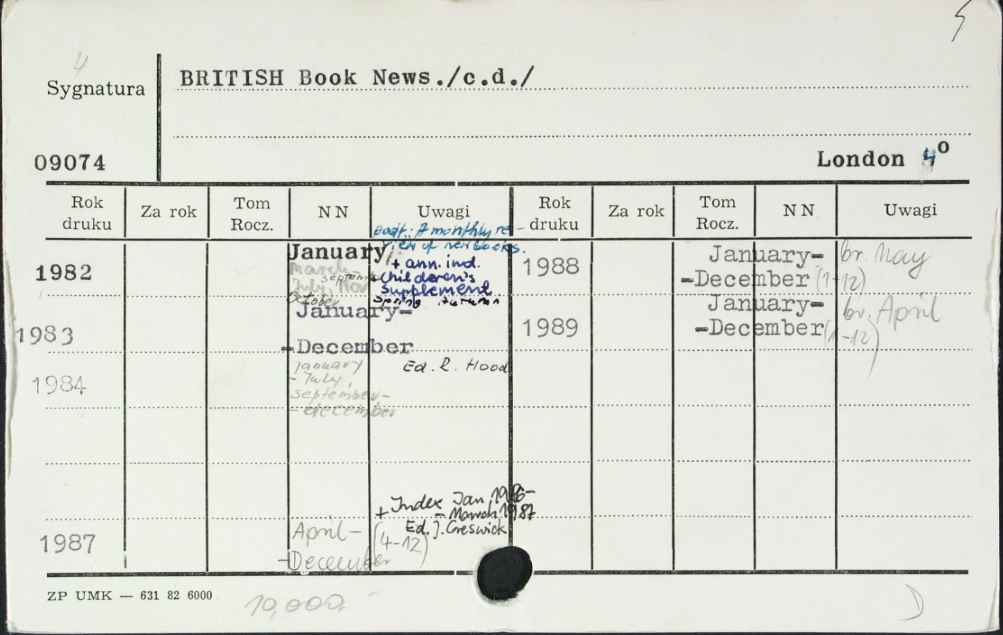 5
4
Sygnatura
BRITISH Book News./c.d./
09074
London 4º
Rok druku Za rok Tom Rocz. NN Uwagi Rok druku Za rok Tom Rocz. NN Uwagi
A monthly re-
view of new books.
1982 January
July, Nov
October
+ ann. ind.
Children's
Supplement
Spring Autumn
1983 January-
-December
1984 january
- July,
september-
- december
Ed. R. Hood
1987 April-
-December
(4-12)
+ Index Jan 1986-
- March 1987
Ed. J. Creswick
1988 January-
-December (1-12)
br. May
1989 January-
-December (1-12)
br. April
ZP UMK — 631 82 6000
10,000